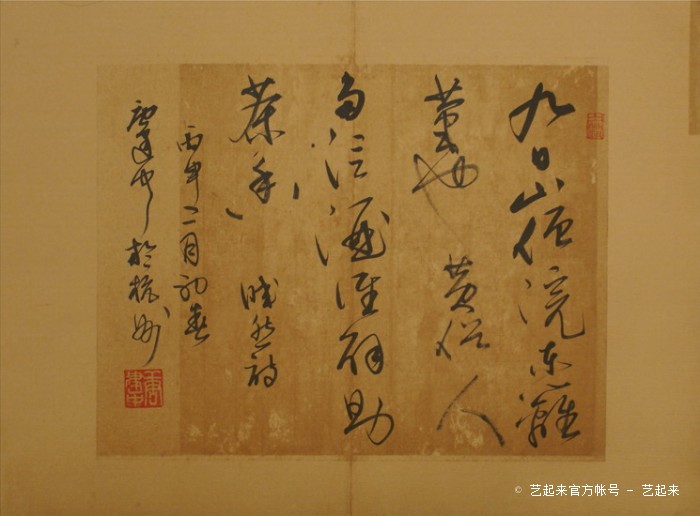 九日山僧院东籬
菊也 黄俗人
多泛酒谁解助
茶香 皎然诗
丙申二月初春
於杭州
© 艺起来官方帐号 - 艺起来